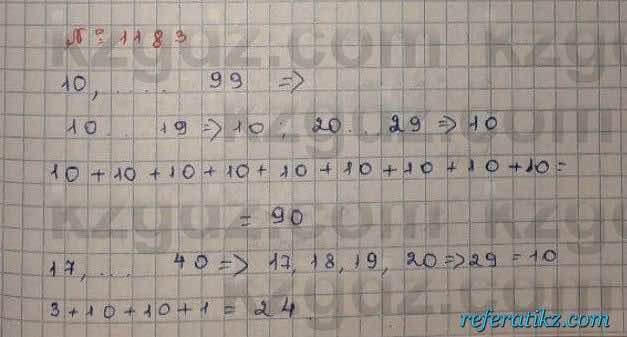 № 1183
10, .... 99 =>
10 .. 19 => 10 ; 20 .. 29 => 10
10 + 10 + 10 + 10 + 10 + 10 + 10 + 10 + 10 =
= 90
17, ... 40 => 17, 18, 19, 20 => 29 = 10
3 + 10 + 10 + 1 = 24.
kzgdz.com
kzgdz.com
kzgdz.com
referatikz.com